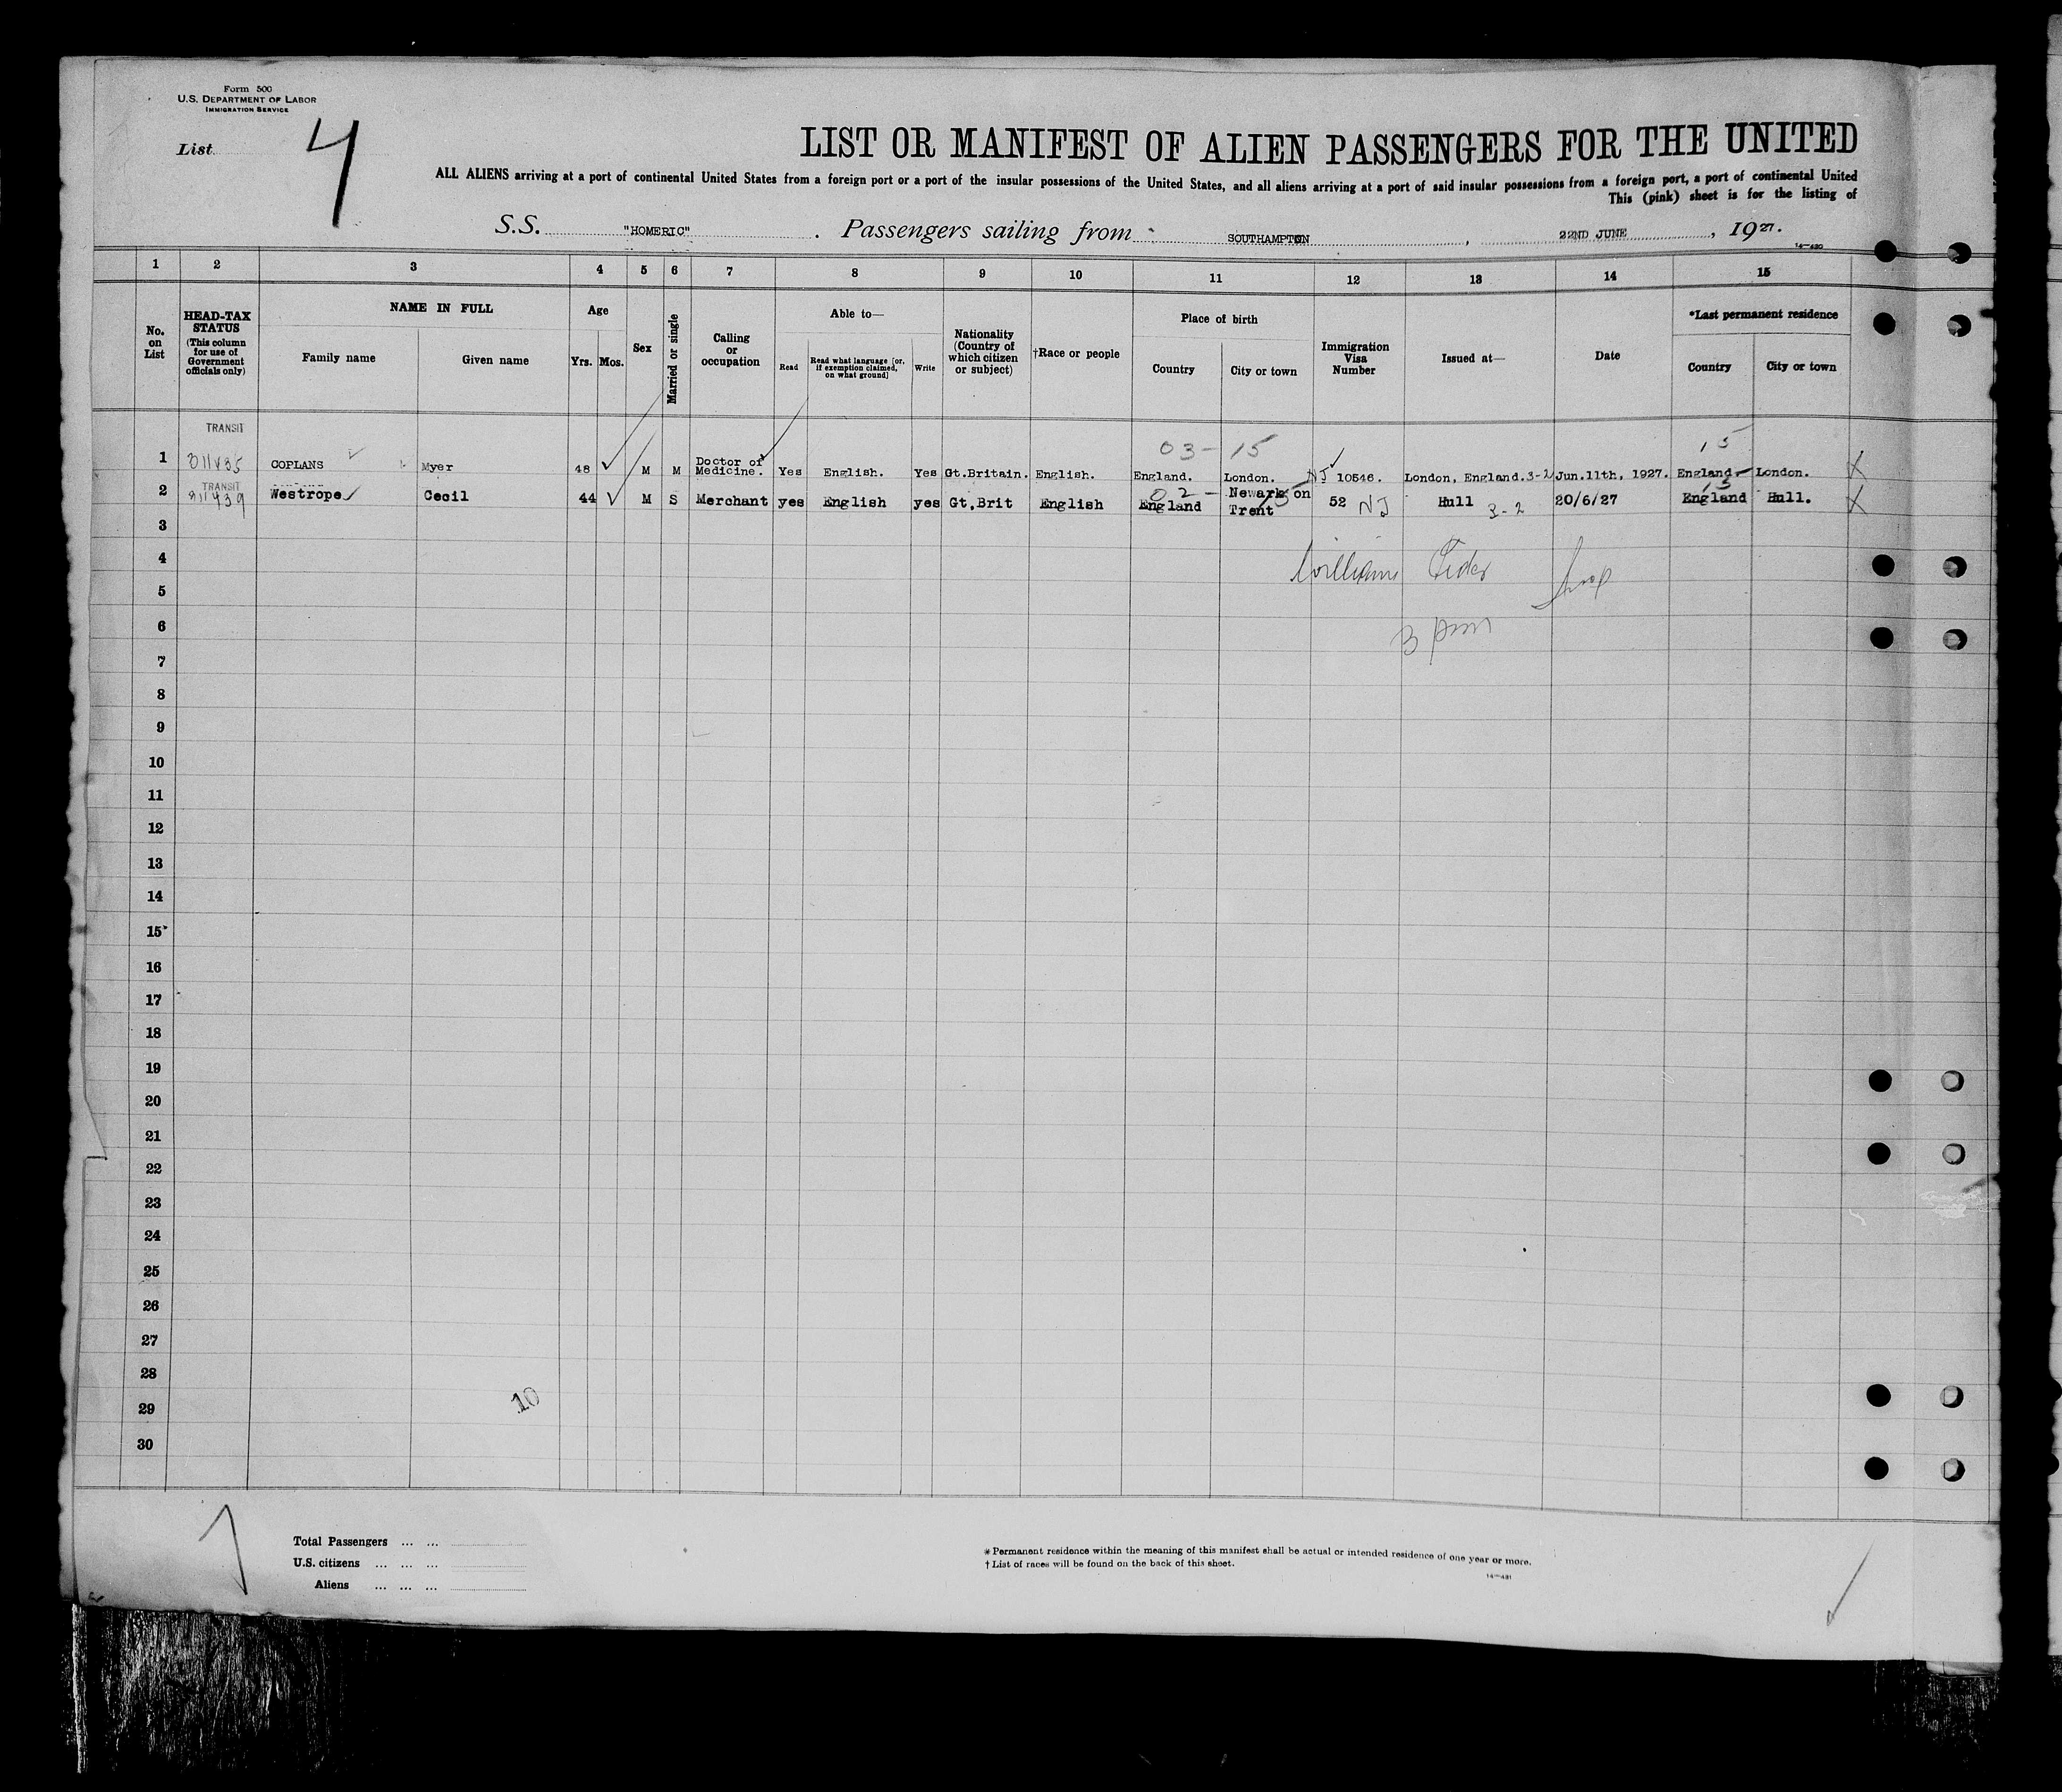 Form 500
U.S. DEPARTMENT OF LABOR
IMMIGRATION SERVICE
List 4
LIST OR MANIFEST OF ALIEN PASSENGERS FOR THE UNITED
ALL ALIENS arriving at a port of continental United States from a foreign port or a port of the insular possessions of the United States, and all aliens arriving at a port of said insular possessions from a foreign port, a port of continental United
This (pink) sheet is for the listing of
S.S. "HOMERIC" . Passengers sailing from SOUTHAMPTON , 22ND JUNE , 1927.
14—430
1 2 3 4 5 6 7 8 9 10 11 12 13 14 15
No. on List
HEAD-TAX STATUS
(This column for use of Government officials only)
NAME IN FULL
Family name
Given name
Age
Yrs. Mos.
Sex
Married or single
Calling or occupation
Able to—
Read
Read what language [or, if exemption claimed, on what ground]
Write
Nationality (Country of which citizen or subject)
†Race or people
Place of birth
Country
City or town
Immigration Visa Number
Issued at—
Date
*Last permanent residence
Country
City or town
TRANSIT
03-15
15
1 COPLANS Myer 48 M M Doctor of Medicine. Yes English. Yes Gt.Britain. English. England. London. NJ 10546. London, England. 3-2 Jun.11th, 1927. England London. X
TRANSIT
02-
15
2 811439 Westrope Cecil 44 M S Merchant yes English yes Gt,Brit English England Newark on Trent 52 NJ Hull 3-2 20/6/27 England Hull. X
3
4
William
5
6
3 pm
7
8
9
10
11
12
13
14
15
16
17
18
19
20
21
22
23
24
25
26
27
28
29
10
30
Total Passengers ... ...
U.S. citizens ... ... ...
Aliens ... ... ...
* Permanent residence within the meaning of this manifest shall be actual or intended residence of one year or more.
† List of races will be found on the back of this sheet.
14—431